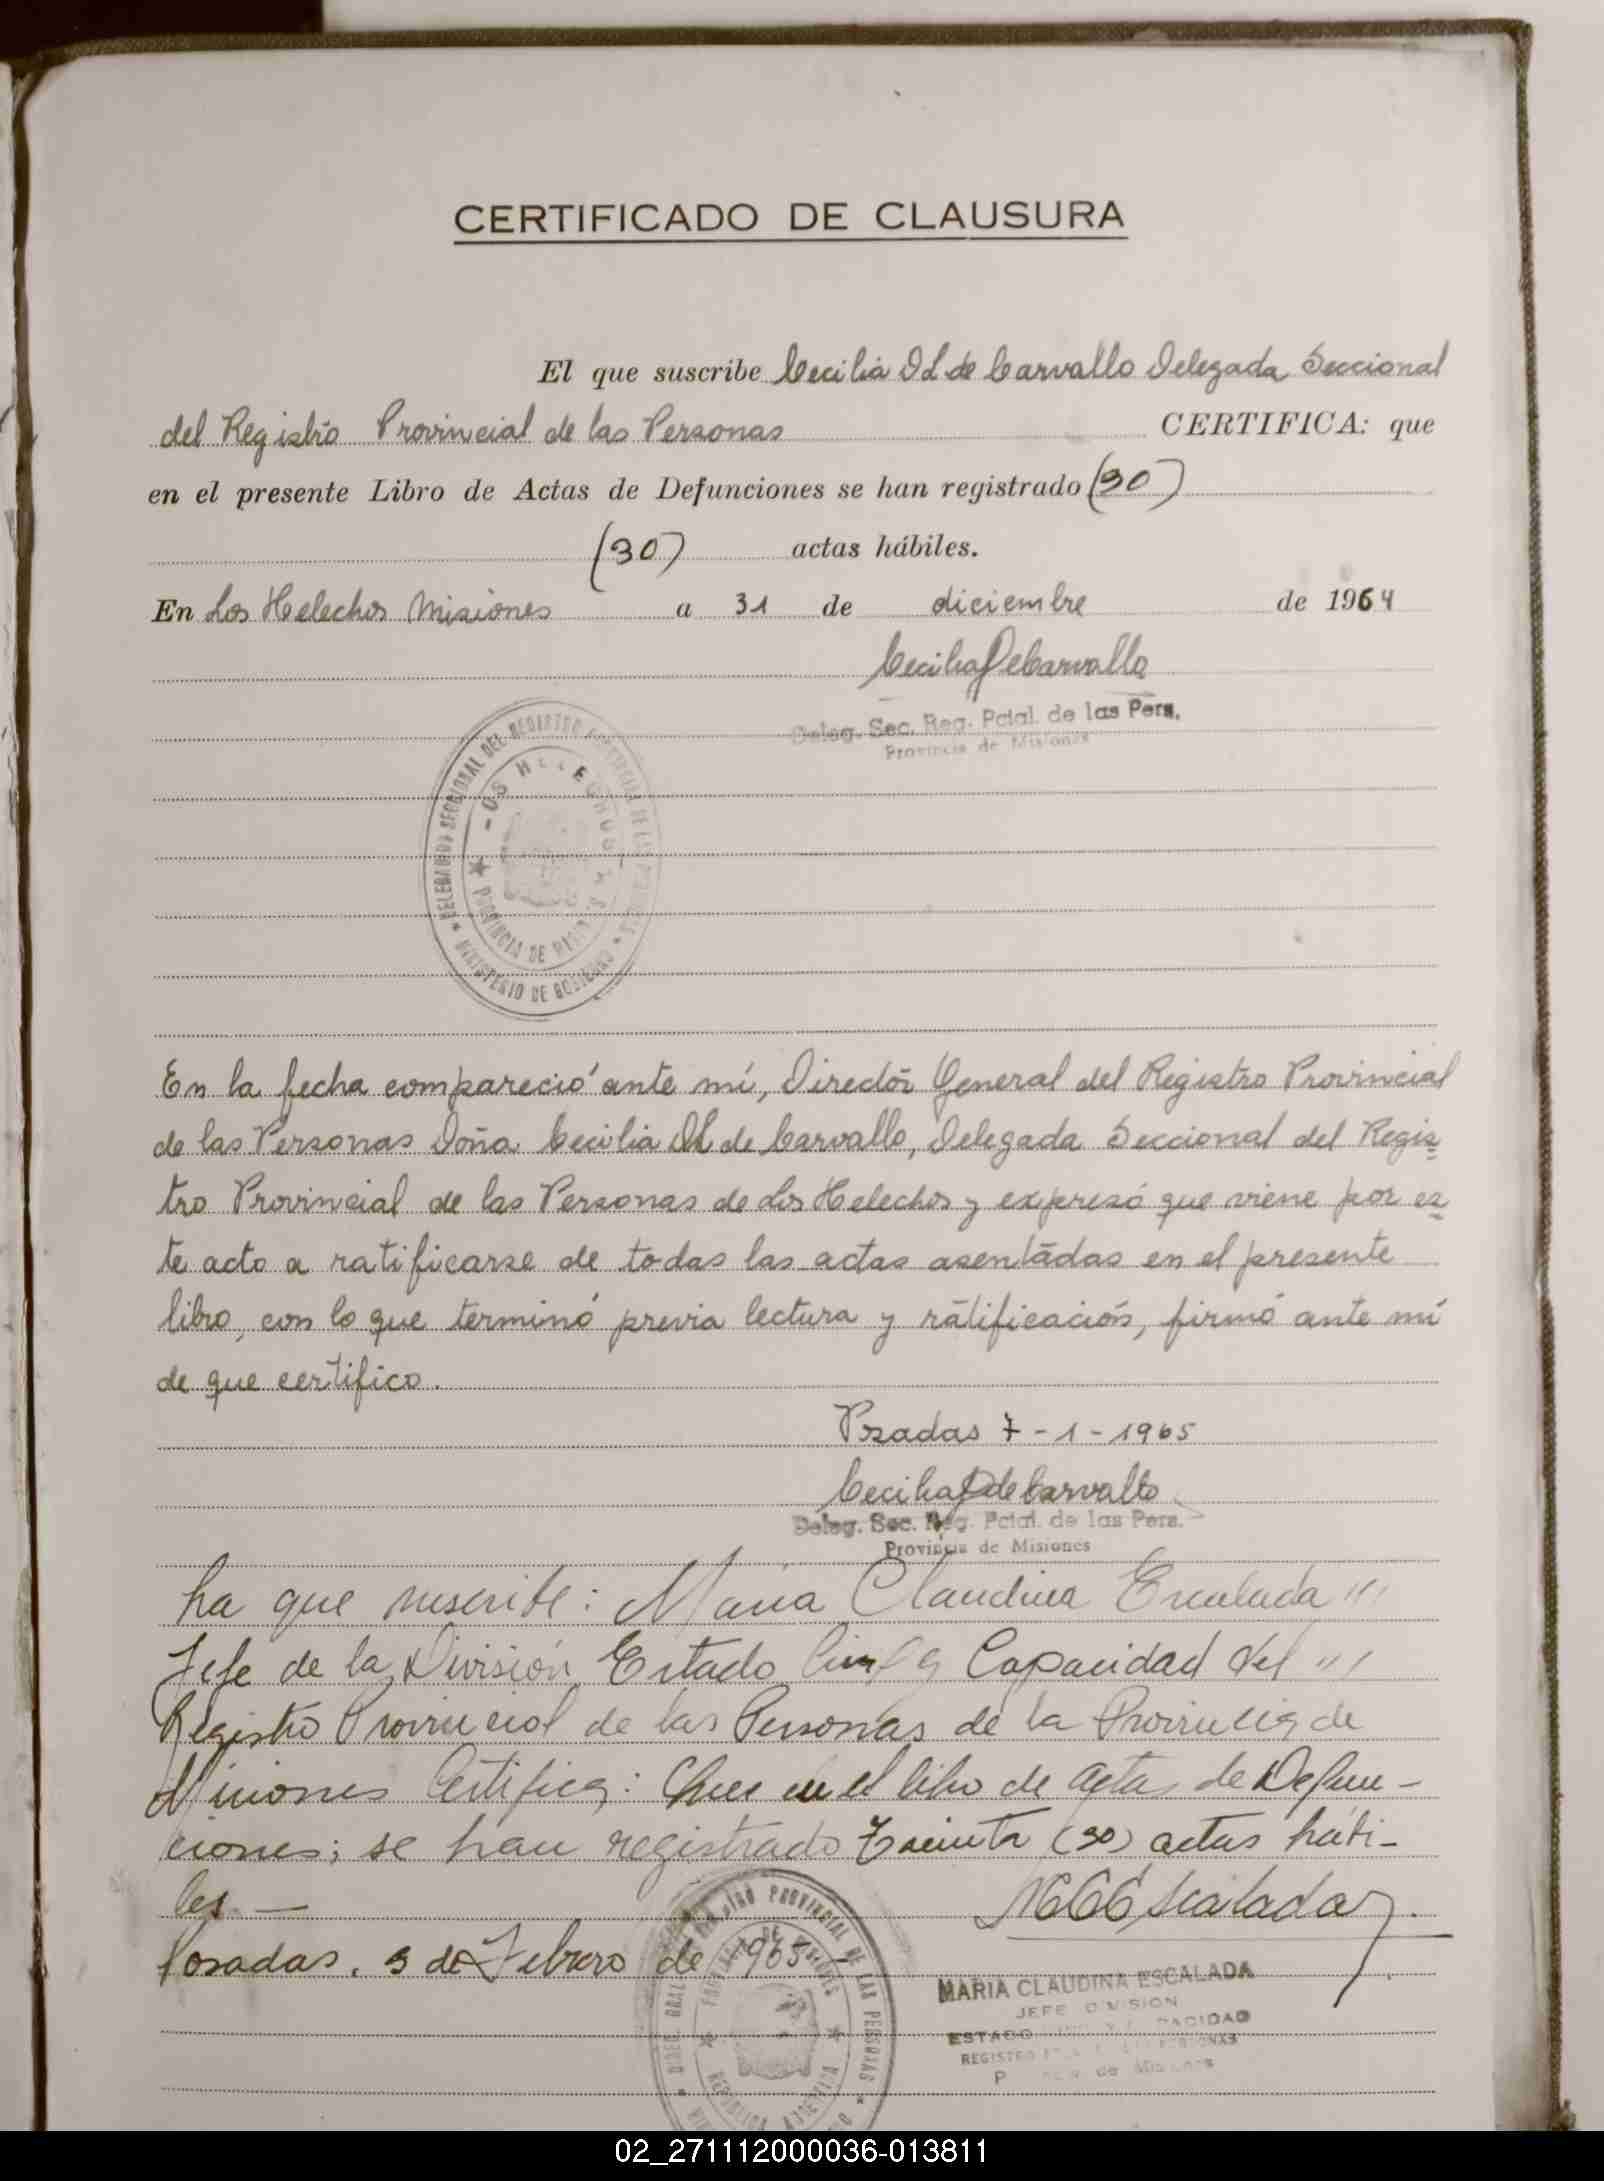 CERTIFICADO DE CLAUSURA
El que suscribe Cecilia D L de Carvallo Delegada Seccional
del Registro Provincial de las Personas CERTIFICA: que
en el presente Libro de Actas de Defunciones se han registrado (30)
(30) actas hábiles.
En Los Helechos Misiones a 31 de diciembre de 1964
Cecilia D de Carvallo
Deleg. Sec. Reg. Pcial. de las Pers.
Provincia de Misiones
DELEGACION SECCIONAL DEL REGISTRO PROVINCIAL DE LAS PERSONAS
LOS HELECHOS
PROVINCIA DE MISIONES
MINISTERIO DE GOBIERNO
En la fecha compareció ante mí, Director General del Registro Provincial
de las Personas Doña Cecilia DL de Carvallo, Delegada Seccional del Regis
tro Provincial de las Personas de Los Helechos y expresó que viene por es
te acto a ratificarse de todas las actas asentadas en el presente
libro, con lo que terminó previa lectura y ratificación, firmó ante mí
de que certifico.
Psadas 7-1-1965
Cecilia D de Carvallo
Deleg. Sec. Reg. Pcial. de las Pers.
Provincia de Misiones
La que suscribe: María Claudina Escalada
Jefe de la División Estado Civil y Capacidad del
Registro Provincial de las Personas de la Provincia de
Misiones Certifica: Que en el libro de actas de Defun-
ciones; se han registrado Treinta (30) actas hábi-
les. —
Posadas, 3 de Febrero de 1965
MCEscalada
MARIA CLAUDINA ESCALADA
JEFE DIVISION
ESTADO CIVIL Y CAPACIDAD
REGISTRO PCIAL DE LAS PERSONAS
Provincia de Misiones
DIREC. GRAL. REGISTRO PROVINCIAL DE LAS PERSONAS
PROVINCIA DE MISIONES
REPUBLICA ARGENTINA
02_271112000036-013811